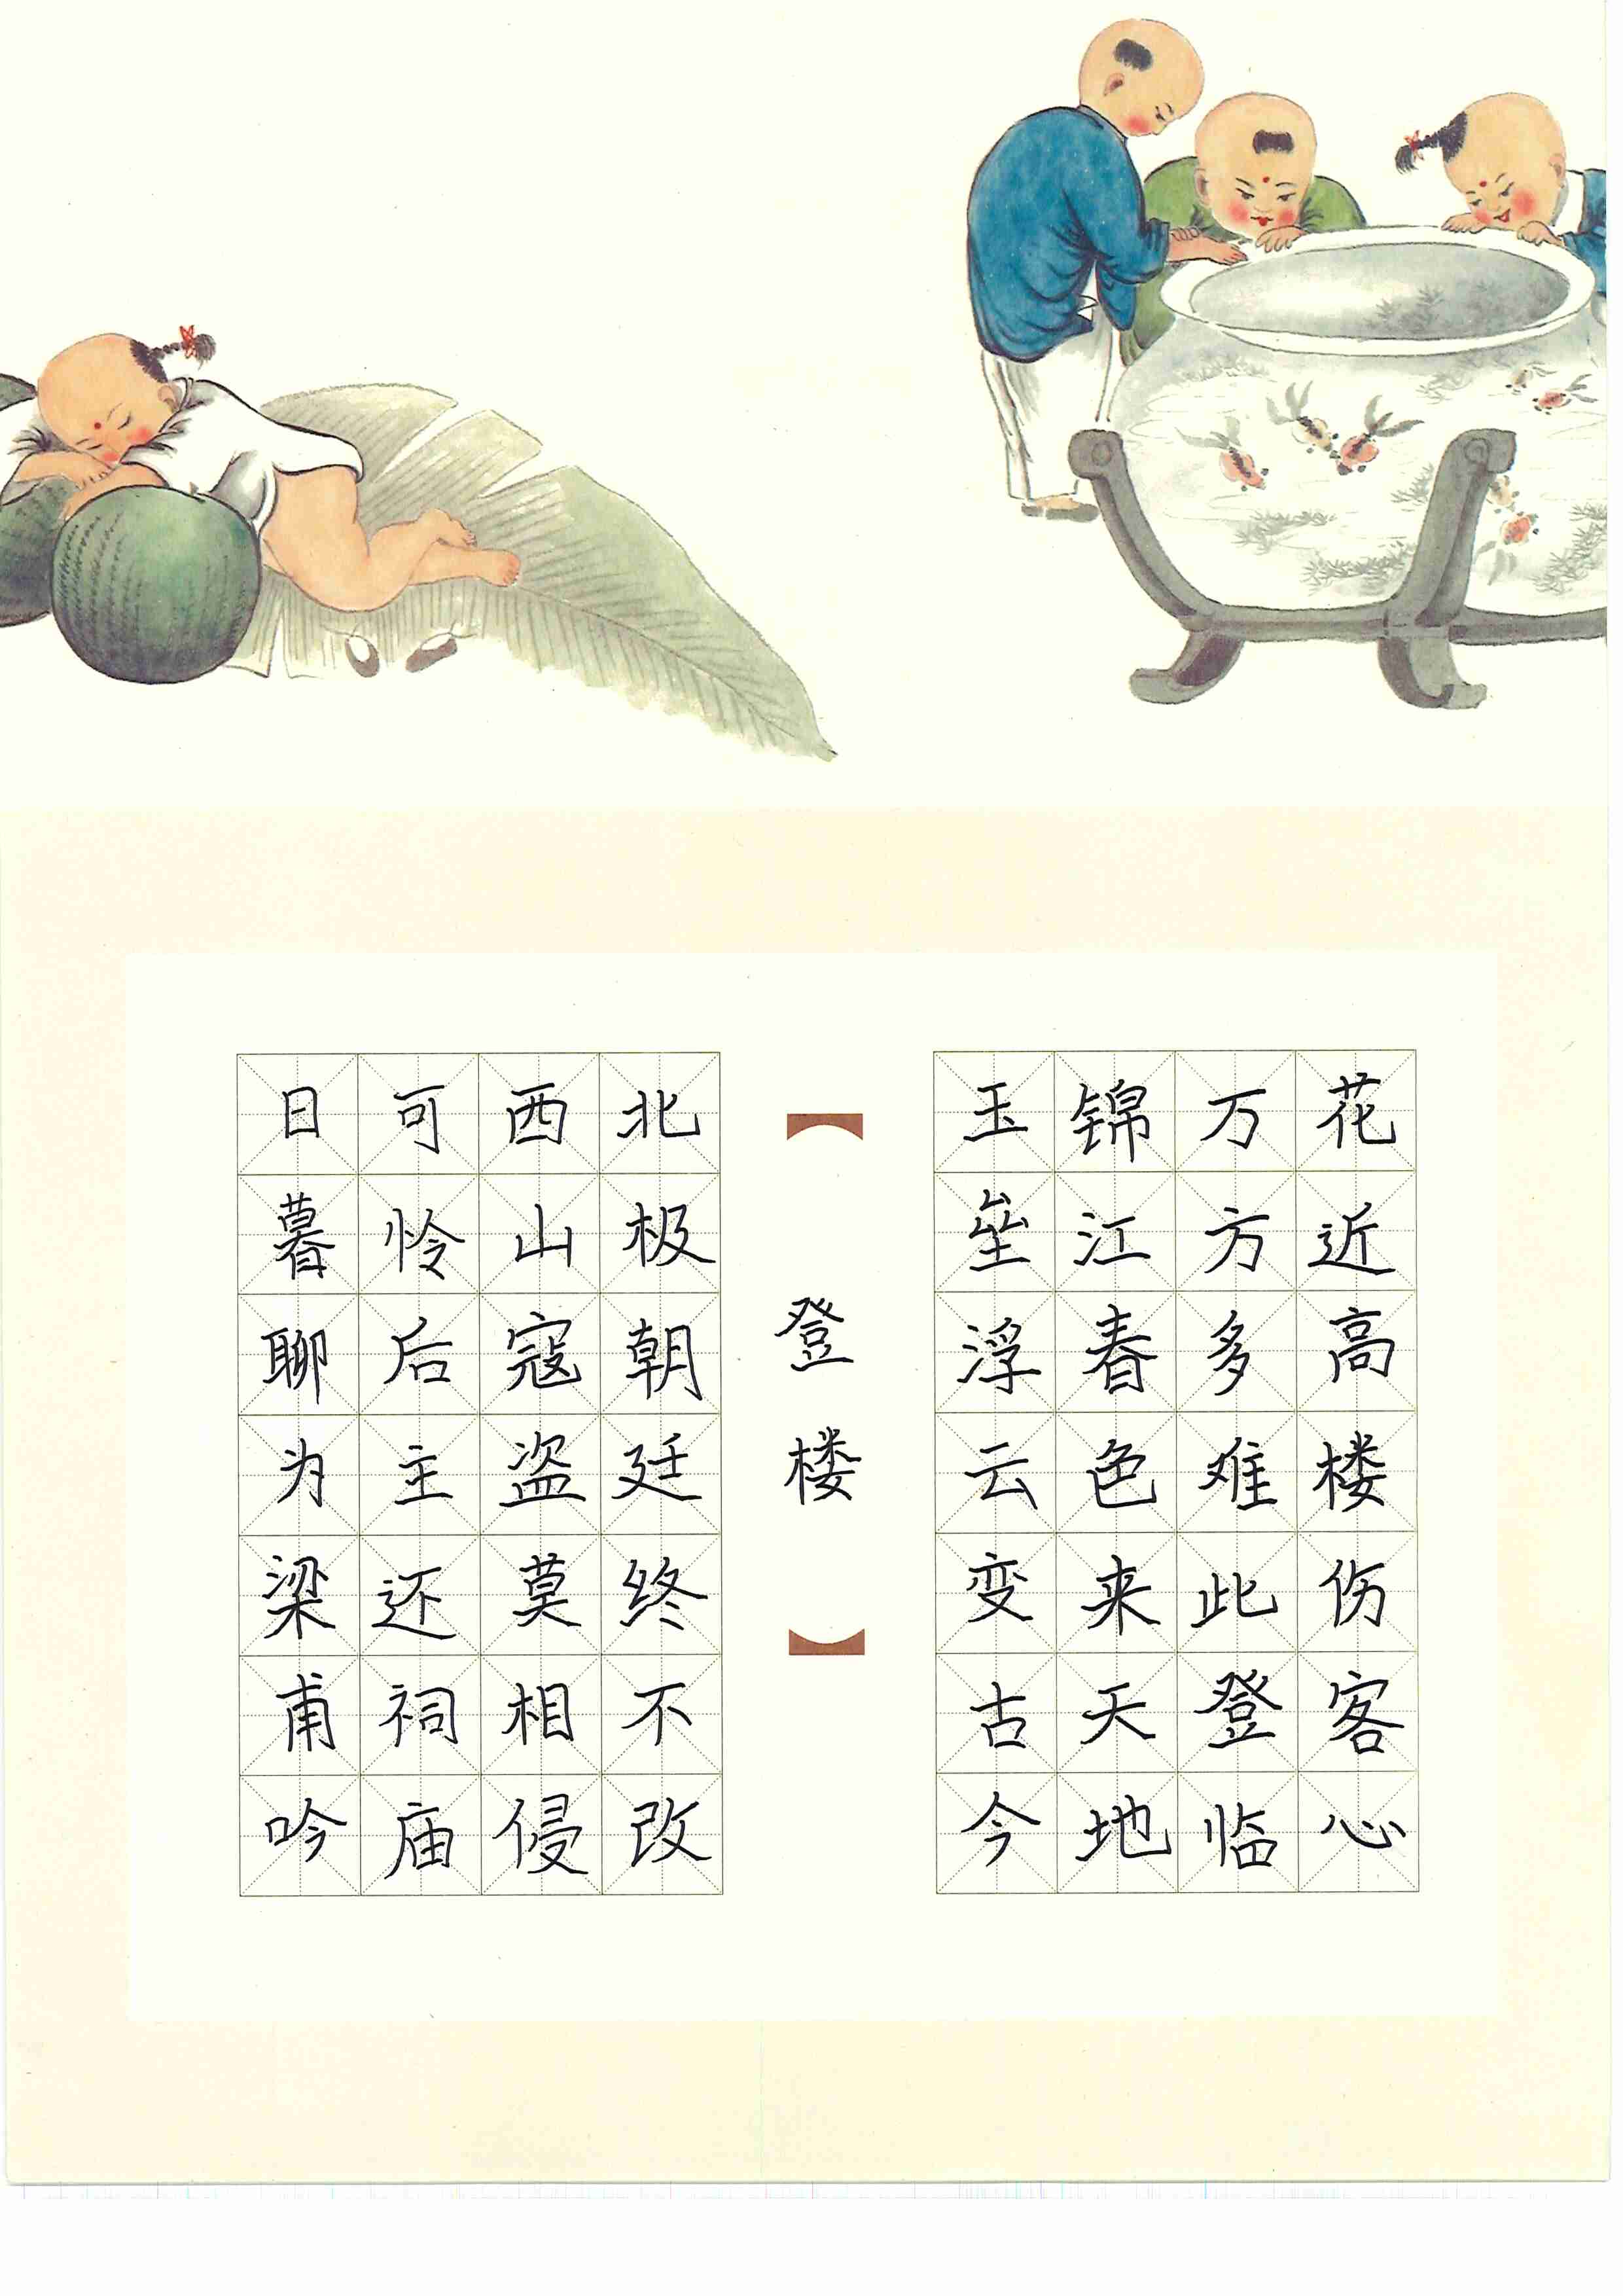 花近高楼伤客心
万方多难此登临
锦江春色来天地
玉垒浮云变古今
【登楼】
北极朝廷终不改
西山寇盗莫相侵
可怜后主还祠庙
日暮聊为梁甫吟